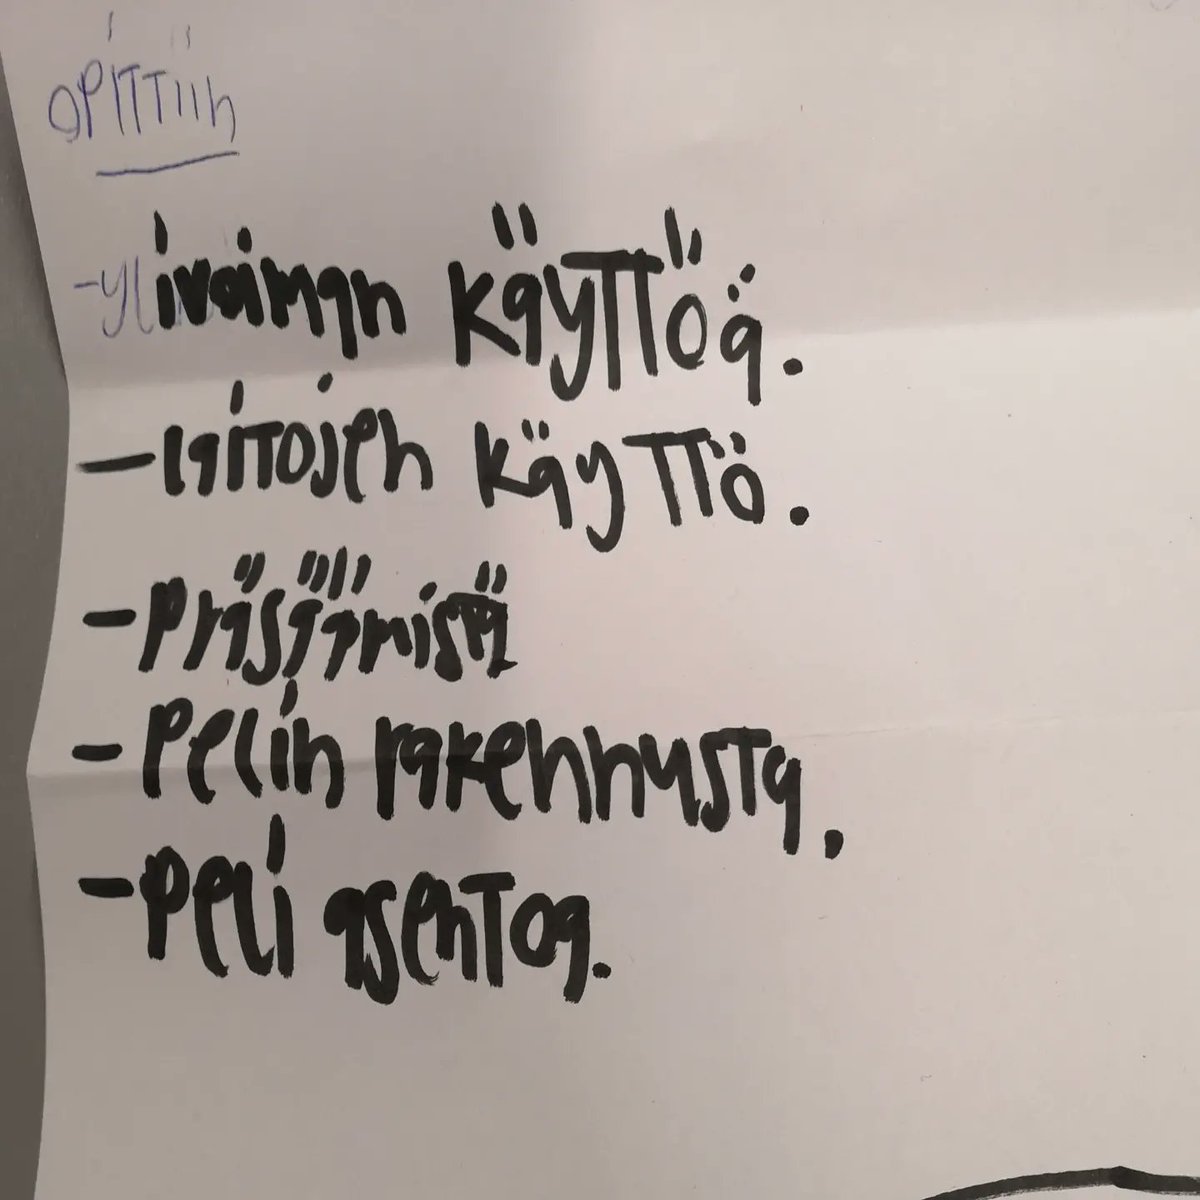 OPITTIIN
-ylivoiman käyttöä.
-laitosen käyttö.
-präsäämistä
-Pelin rakennusta.
-Peli asentoa.